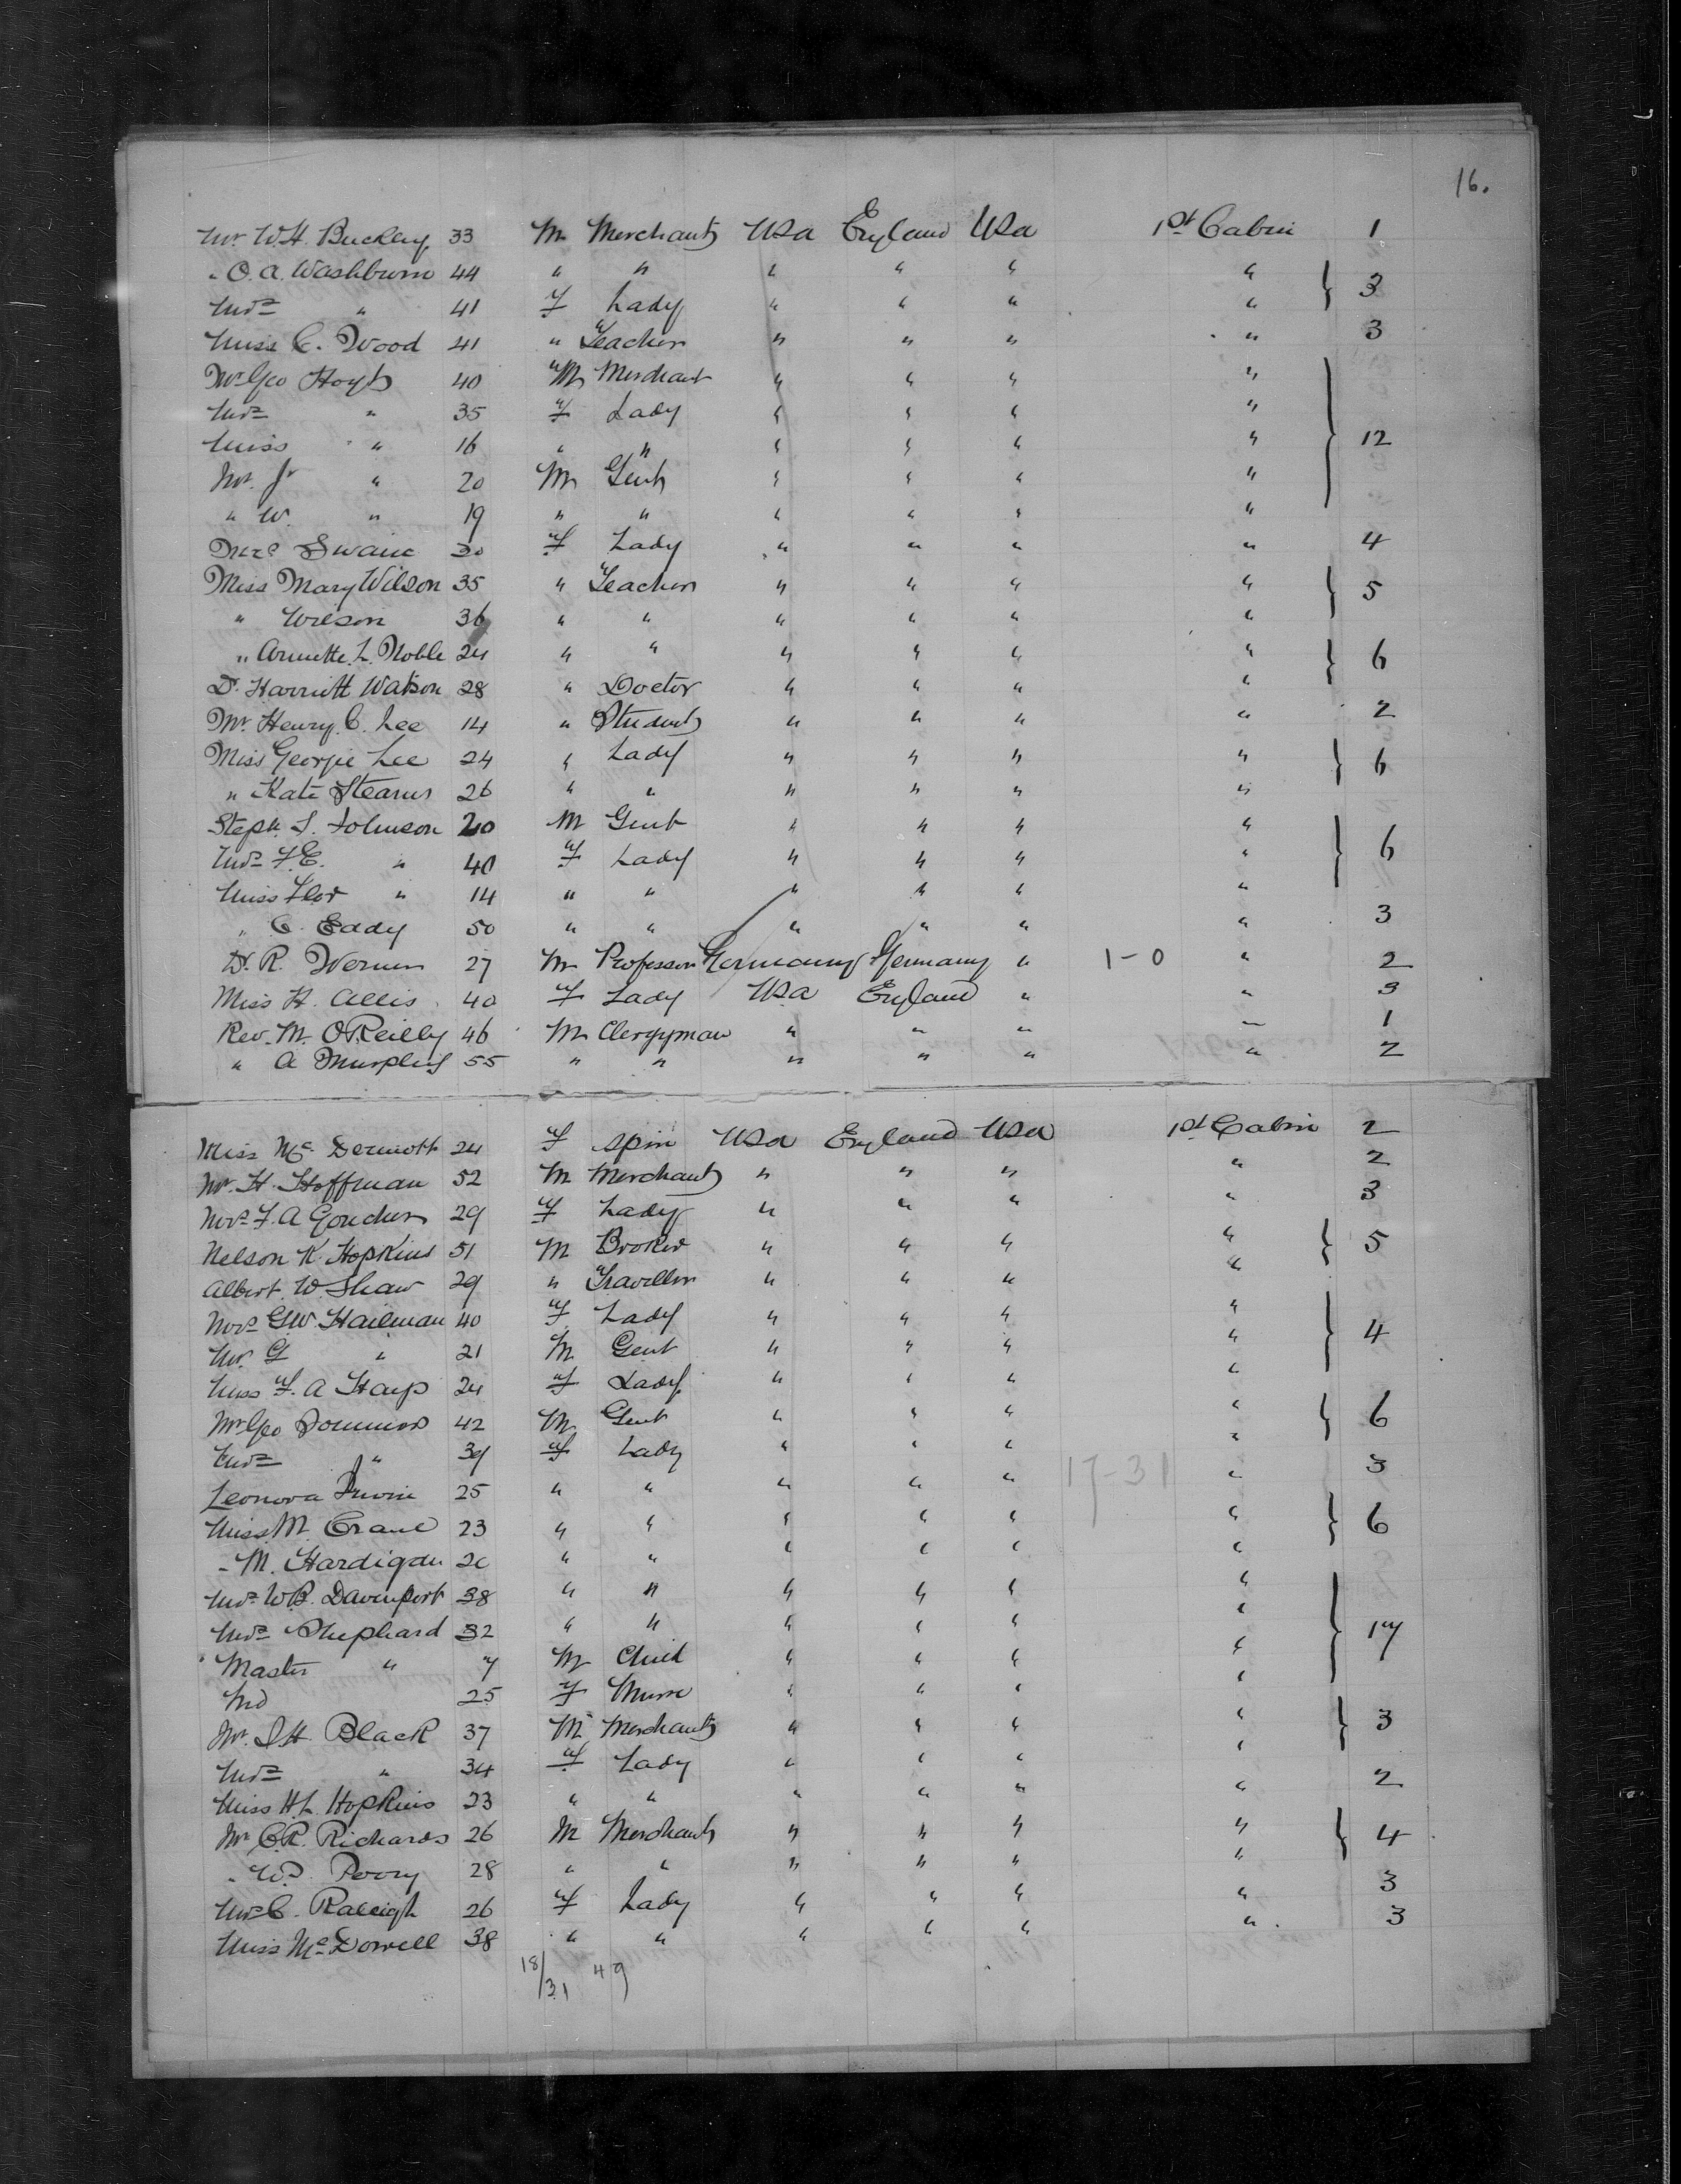 16.
Mr W.H. Buckley 33 M Merchant USA England USA 1st Cabin 1
" O.A. Washburn 44 " " " " " " 3
Mrs " 41 F Lady " " " "
Miss C. Wood 41 " Teacher " " " " 3
Mr Geo Hoyt 40 M Merchant " " " " 12
Mrs " 35 F Lady " " " "
Miss " 16 " " " " " "
Mr. Jr " 20 M Gent " " " "
" W. " 19 " " " " " "
Mrs Swain 30 F Lady " " " " 4
Miss Mary Wilson 35 " Teacher " " " " 5
" Wilson 36 " " " " " "
" Annette L. Noble 24 " " " " " " 6
Dr. Harriett Watson 28 " Doctor " " " "
Mr. Henry C. Lee 14 " Student " " " " 2
Miss Georgie Lee 24 " Lady " " " " 6
" Kate Stearns 26 " " " " " "
Steph. S. Johnson 20 M Gent " " " " 6
Mrs F.E. " 40 F Lady " " " "
Miss Flor " 14 " " " " " "
" C. Eady 50 " " " " " " 3
Dr. R. Werner 27 M Professor Germany Germany " 1-0 " 2
Miss H. Allis 40 F Lady USA England " " 3
Rev. M. O'Reilly 46 M Clergyman " " " " 1
" A Murphy 55 " " " " " " 2
Miss Mc Dermott 24 F Spin USA England USA 1st Cabin 2
Mr. H. Hoffman 52 M Merchant " " " " 2
Mrs F.A Goucher 29 F Lady " " " " 3
Nelson K. Hopkins 51 M Broker " " " " 5
Albert. W. Shaw 29 " Traveller " " " "
Mrs G.W. Hailman 40 F Lady " " " " 4
Mr. G " 21 M Gent " " " "
Miss F. A Hays 24 F Lady " " " "
Mr Geo 42 M Gent " " " " 6
Mrs " 39 F Lady " " " "
Leonora Irwin 25 " " " " " 17-31 " 3
Miss M. Crane 23 " " " " " " 6
" M. Hardigan 20 " " " " " "
Mrs W.B. Davenport 38 " " " " " " 17
Mrs Shephard 32 " " " " " "
Master " 7 M Child " " " "
25 F Nurse " " " "
Mr. I.H. Black 37 M Merchant " " " " 3
Mrs " 34 F Lady " " " "
Miss H.L. Hopkins 23 " " " " " " 2
Mr C.R. Richards 26 M Merchant " " " " 4
" W.P. Perry 28 " " " " " "
Mrs C. Raleigh 26 F Lady " " " " 3
Miss McDowell 38 " " " " " " 3
18/31 49